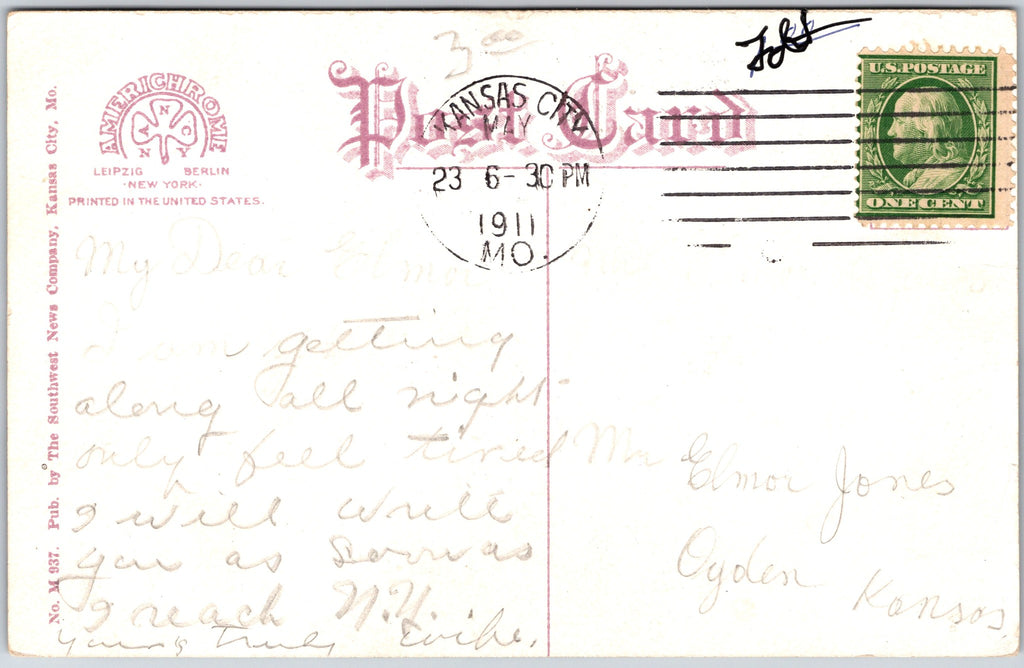 3.00
AMERICHROME
A N C N Y
LEIPZIG BERLIN
·NEW YORK·
PRINTED IN THE UNITED STATES.
Post Card
KANSAS CITY
MAY
23 6-30 PM
1911
MO.
U.S. POSTAGE
ONE CENT
No. M 937. Pub. by The Southwest News Company, Kansas City, Mo.
My Dear Elmor
I am getting
along all right
only feel tired
I will write
you as soon as
I reach N.Y.
yours truly
Mr Elmor Jones
Ogden Kansas